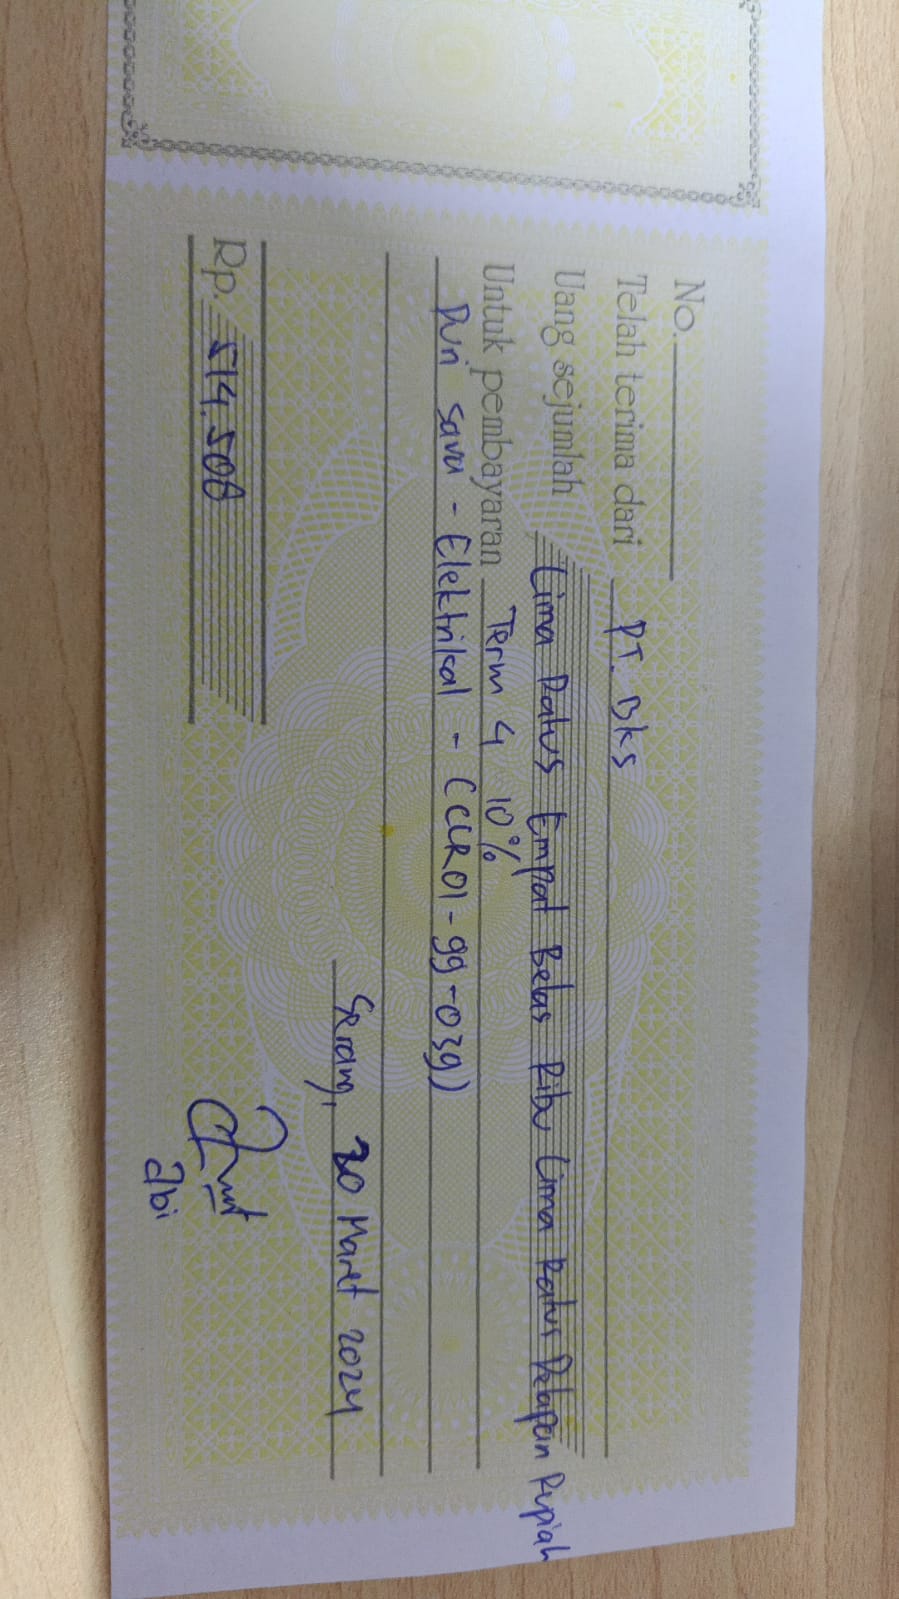 No.
Telah terima dari PT. Bks
Uang sejumlah Lima Ratus Empat Belas Ribu Lima Ratus Delapan Rupiah
Untuk pembayaran Term 4 10%
Duri Savu - Elektrikal - (CLR01-99-039)
Serang, 30 Maret 2024
Rp. 514.508
abi